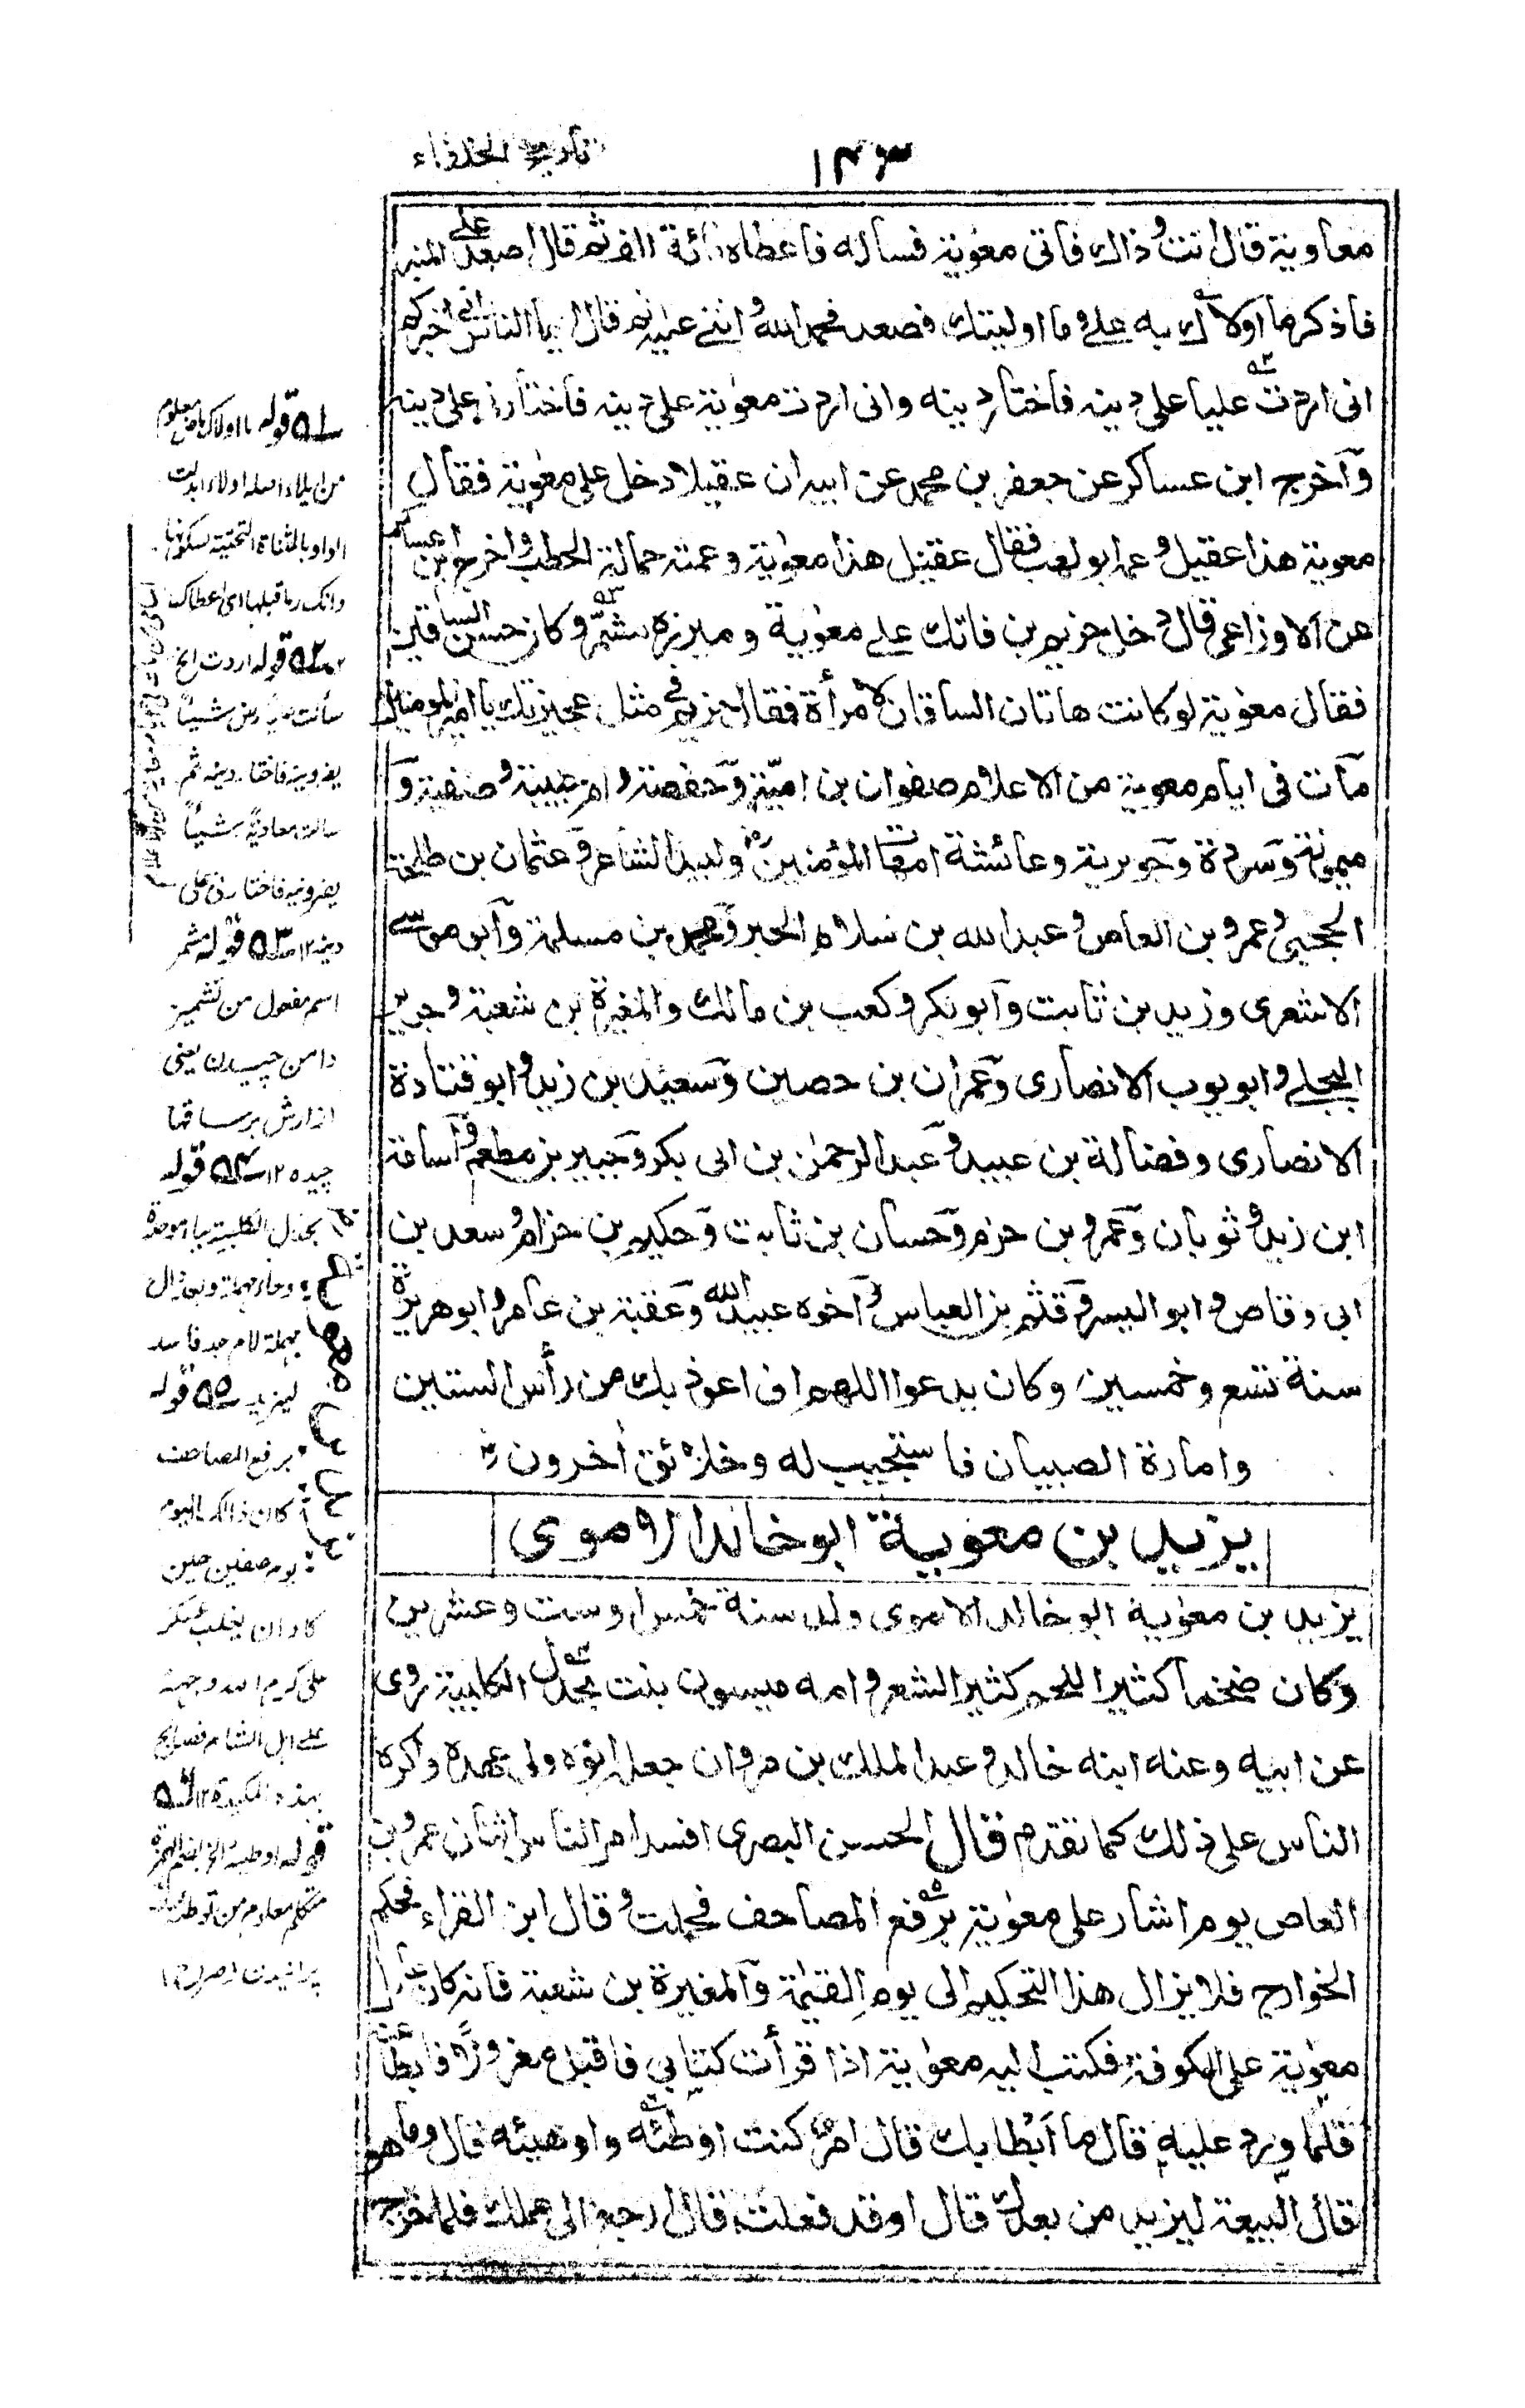 ۱۴۳
تاريخ الخلفاء
معاوية قال انت وذاك فاتى معٰوية فساله فاعطاه مائة الف ثم قال اصعد على المنبر
فاذكر ما اولاك به على وما اوليتك فصعد فحمد الله واثنے عليه ثم قال ايها الناس انى اخبركم
انى اردت عليا على دينه فاختار دينه وانى اردت معٰوية على دينه فاختارنى على دينه
وآخرج ابن عساكر عن جعفر بن محمد عن ابيه ان عقيلا دخل على معٰوية فقال
معوية هذا عقيل وعمه ابو لهب فقال عقيل هذا معٰوية وعمته حمالة الحطب واخرج ابن عساكر
عن الاوزاعى قال دخل خريم بن فاتك علے معٰوية وميزره مشمّر وكان حسن الساقين
فقال معٰوية لو كانت هاتان الساقان لامرأة فقال خريم فى مثل عجيزتك يا امير المؤمنين
مآت فى ايام معوية من الاعلام صفوان بن اميّة وحفصة وام حبيبة وصفية و
ميمونة وسودة وجويرية وعائشة امهات المؤمنين ولبيد الشاعر وعثمان بن طلحة
الحجبى وعمرو بن العاص وعبد الله بن سلام الحبر ومحمد بن مسلمة وآبو موسے
الاشعرى وزيد بن ثابت وآبو بكر وكعب بن مالك والمغيرة بن شعبة وجرير
البجلے وابو يوب الانصارى وعمران بن حصين وسعيد بن زيد وابو قتادة
الانصارى وفضالة بن عبيد وعبد الرحمٰن بن ابى بكر وجبير بن مطعم وأسامة
ابن زيد وثوبان وعمرو بن حزم وحسان بن ثابت وحكيم بن حزام وسعد بن
ابى وقاص وابو اليسر وقثم بن العباس وآخوه عبيد الله وعقبة بن عامر وابو هريرة
سنة تسع وخمسين وكان يدعوا اللهم انى اعوذ بك من رأس الستين
وامارة الصبيان فاستجيب له وخلائق أخرون
يزيد بن معوية ابو خالد الاموى
يزيد بن معٰوية ابو خالد الاموى ولد سنة خمس او ست وعشرين
وكان ضخما كثير اللحم كثير الشعر وامه ميسون بنت بحدل الكلبية روى
عن ابيه وعنه ابنه خالد وعبد الملك بن مروان جعله ابوه ولى عهده واكره
الناس على ذلك كما تقدم قال الحسن البصرى افسد امر الناس اثنان عمرو بن
العاص يوم اشار على معٰوية برفع المصاحف فحملت وقال ابن القراء فحكم
الخوارج فلا يزال هذا التحكيم الى يوم القيٰمة والمغيرة بن شعبة فانه كان عامل
معٰوية على الكوفة فكتب اليه معٰوية اذا قرأت كتابى فاقبل معزولا فابطأ عنه
فلما ورد عليه قال ما أبطأ بك قال امر كنت اوطئه واوهيئه قال وما هو
قال البيعة ليزيد من بعدك قال اوقد فعلت قال نعم قال ارجع الى عملك فلما خرج
۵۱ قوله ما اولاك ماض معلوم
من ايلاء اصله اولاء ابدلت
الواو بالمثناة التحتية لسكونها
وانكسار ما قبلها اى اعطاك
۵۲ قوله اردت الخ
سألت عليا دين شيئاً
يضر دينه فاختار دينه ثم
سالت معاوية شيئاً
يضر دينه فاختارنى على
دينه ۱۲ ۵۳ قوله مشمر
اسم مفعول من تشمير
دامن چيدن يعنى
ازارش بر ساقها
چيده ۱۲ ۵۴ قوله
بحدل الكلبية بباء موحدة
وحاء مهملة وبعد دال
مهملة لام جد فاسد
ليزيد ۵۵ قوله
برفع المصاحف
كان ذالك اليوم
يوم صفين حين
كاد ان يغلب عسكر
على كرم الله وجهه
علے اهل الشام فصالح
بهذه المكيدة ۱۲ ۵۶
قوله اوطئه الخ بضم الهمزة
متكلم معلوم من توطئة